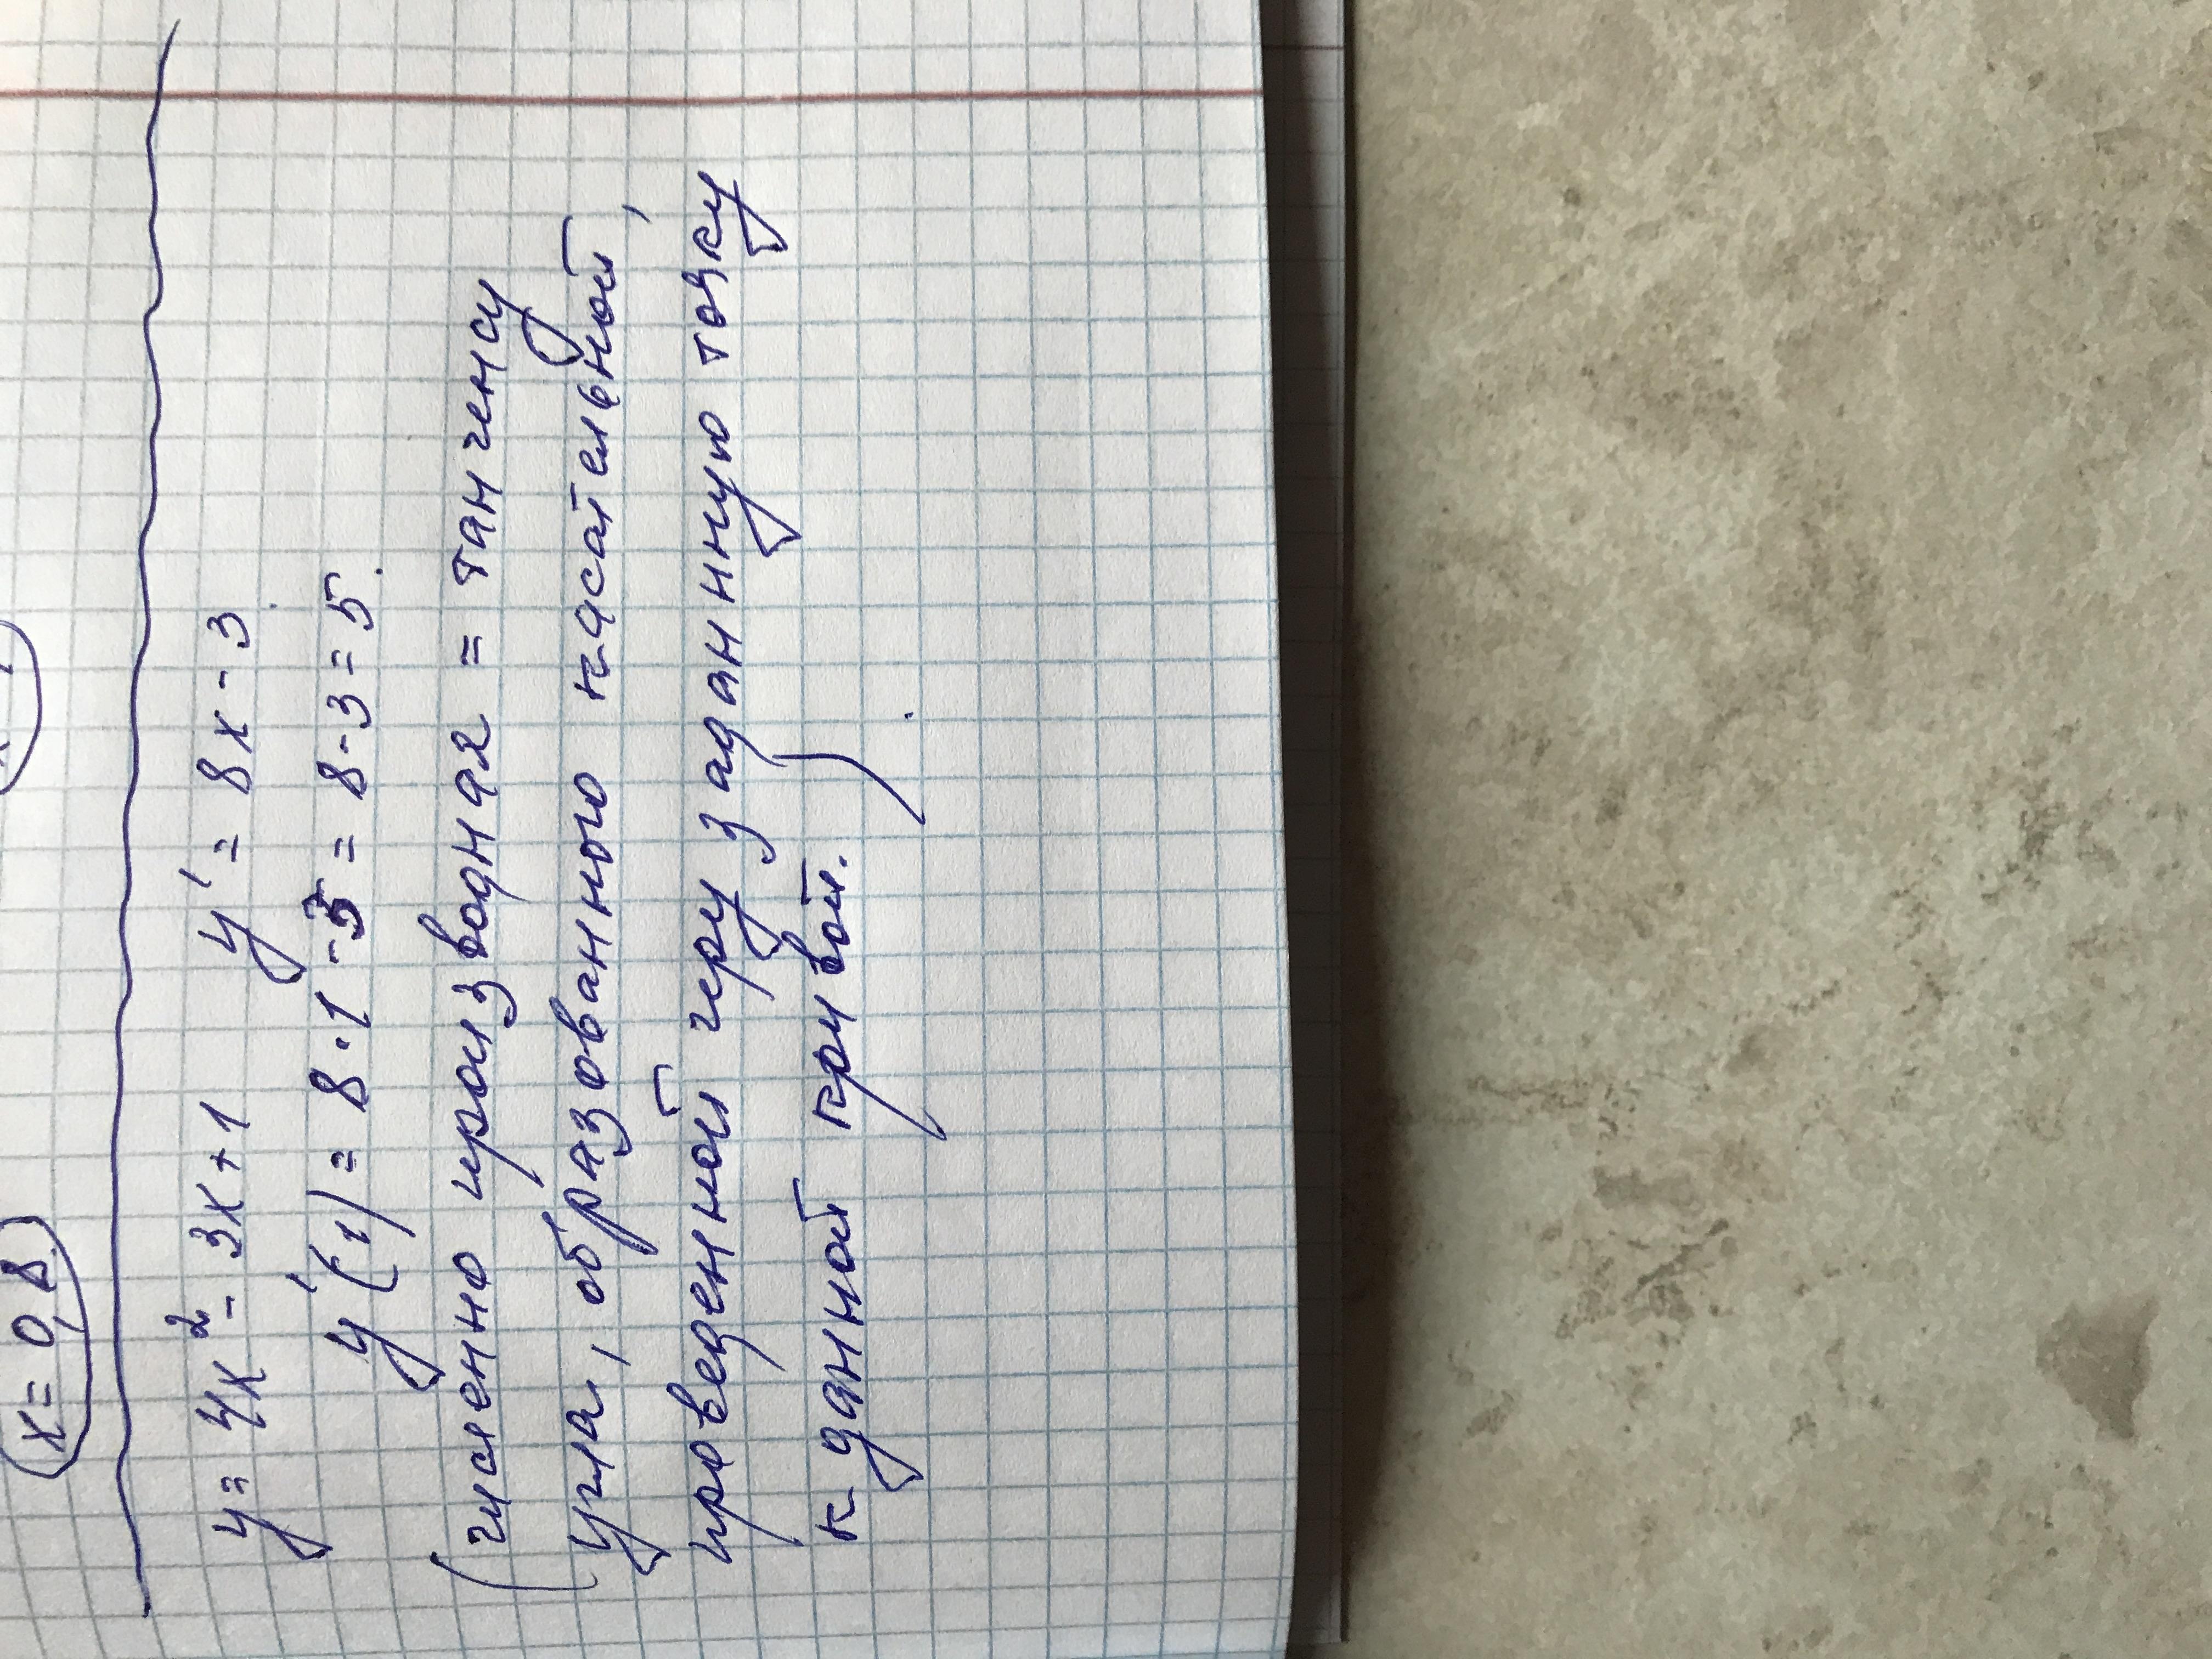 x = 0,8
y = 4x² - 3x + 1 y' = 8x - 3.
y'(1) = 8 · 1 - 3 = 8 - 3 = 5.
(численно производная = тангенсу
угла, образованного касательной,
проведенной чрз заданную точку
к данной кривой.)